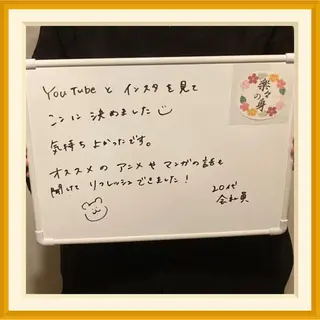 YouTubeと インスタを見て
ここに 決めました
気持ち よかったです。
オススメの アニメや マンガの話も
聞けて リフレッシュできました!
20代
会社員
楽々の身